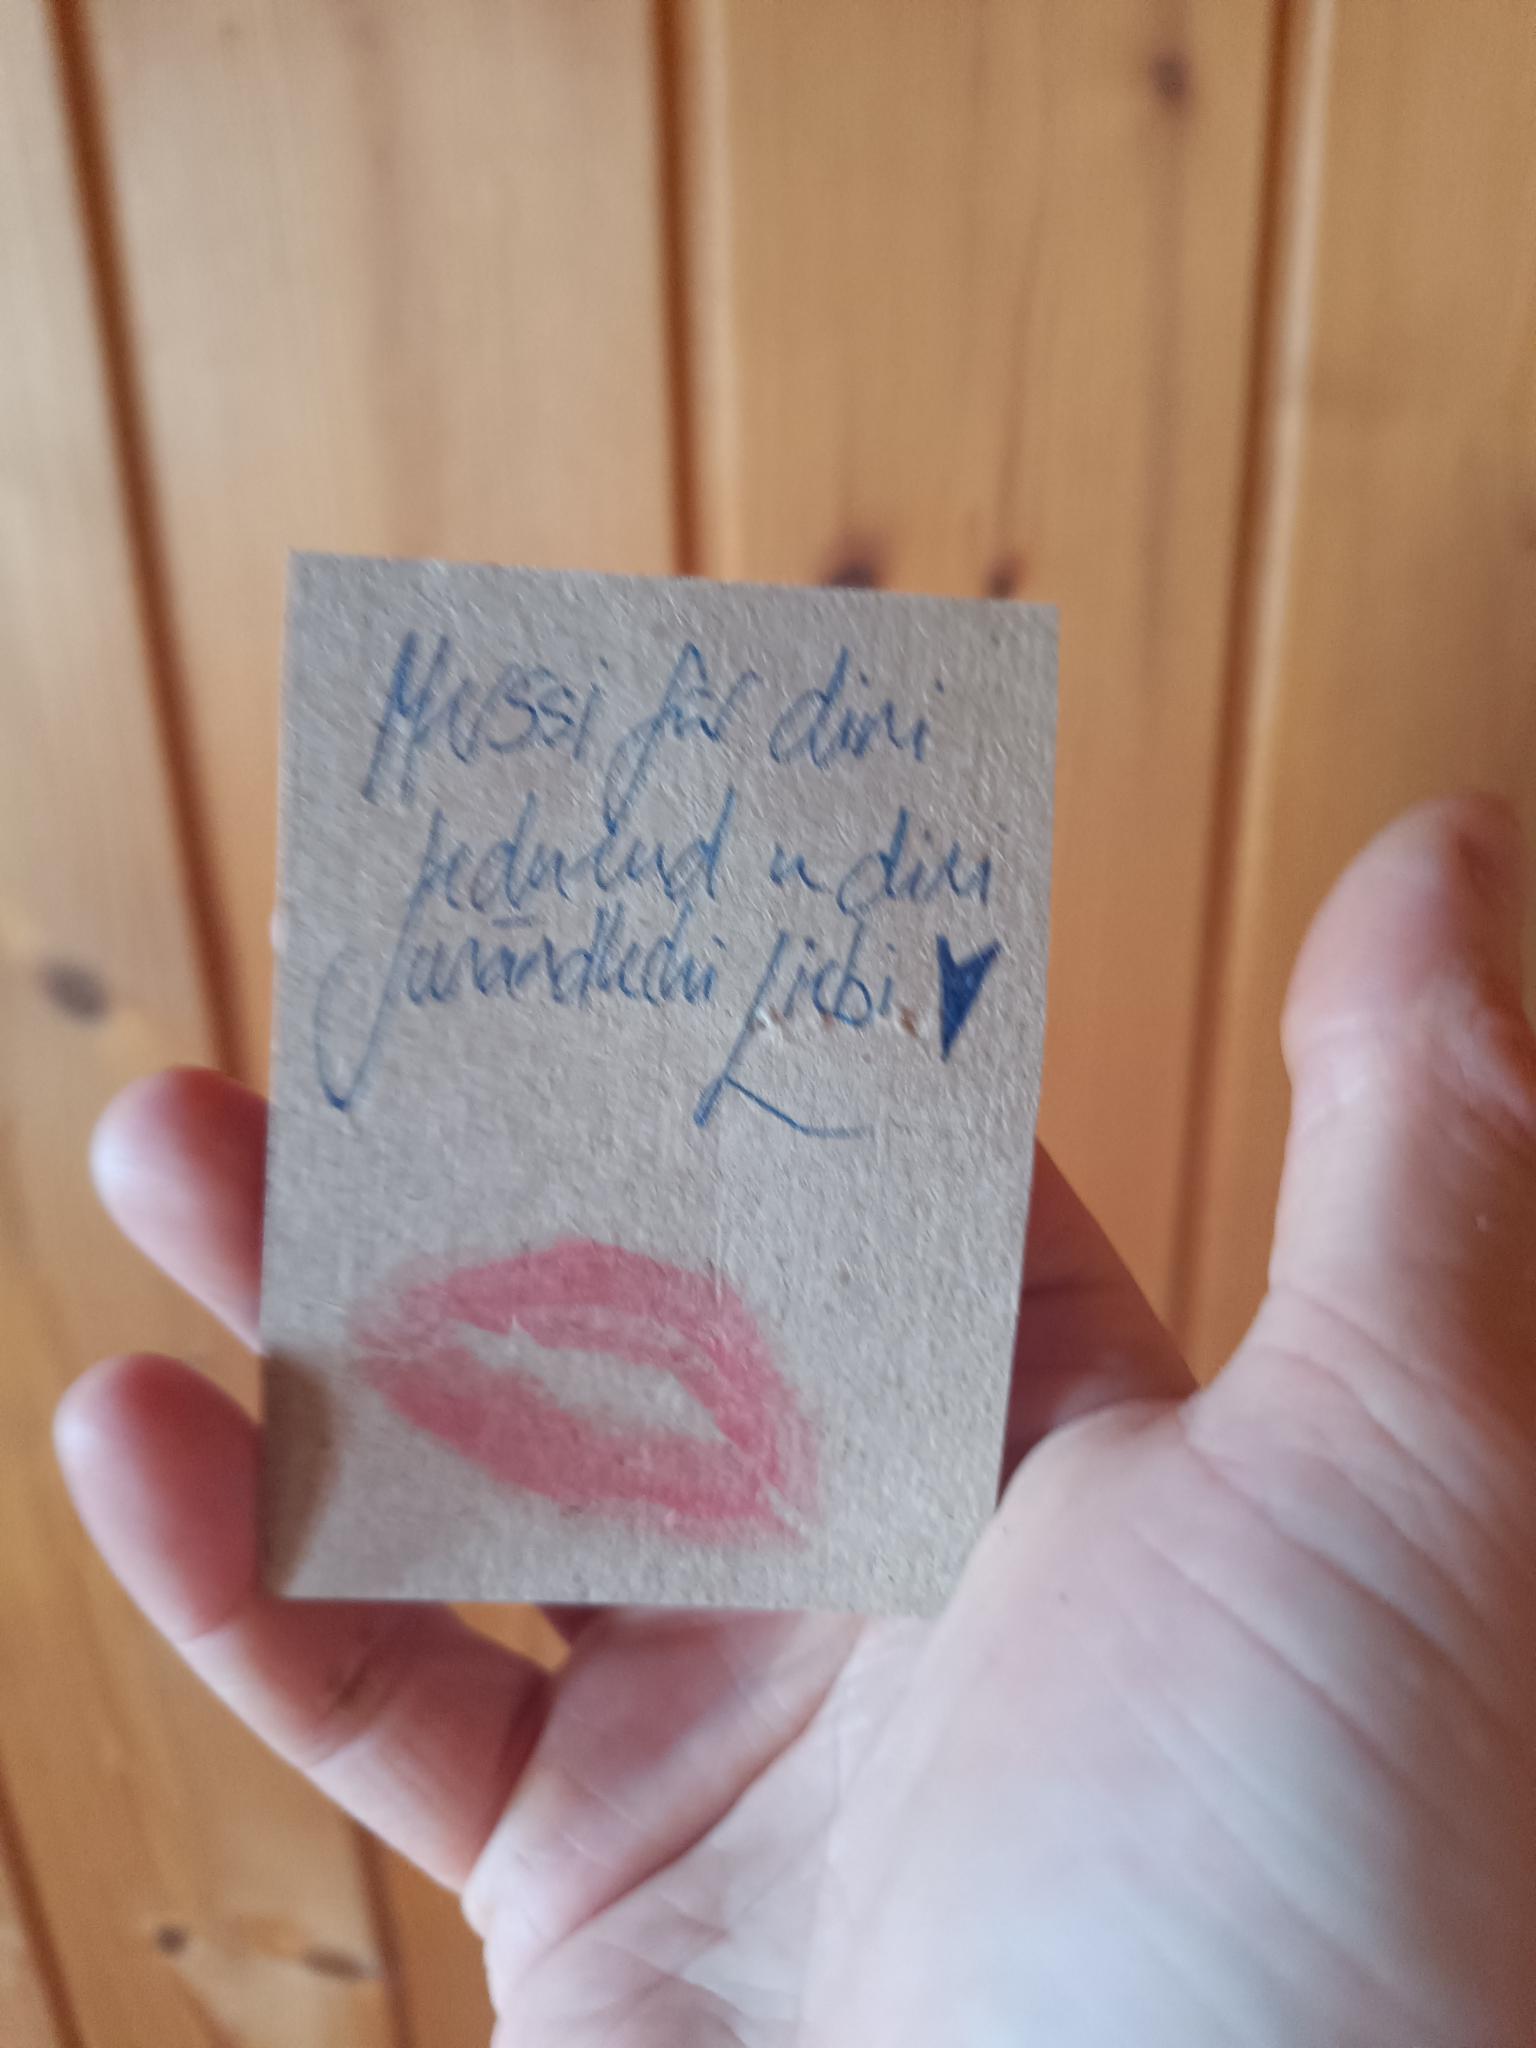 Merssi für dini
jedulud u dini
unändlechi Liebi